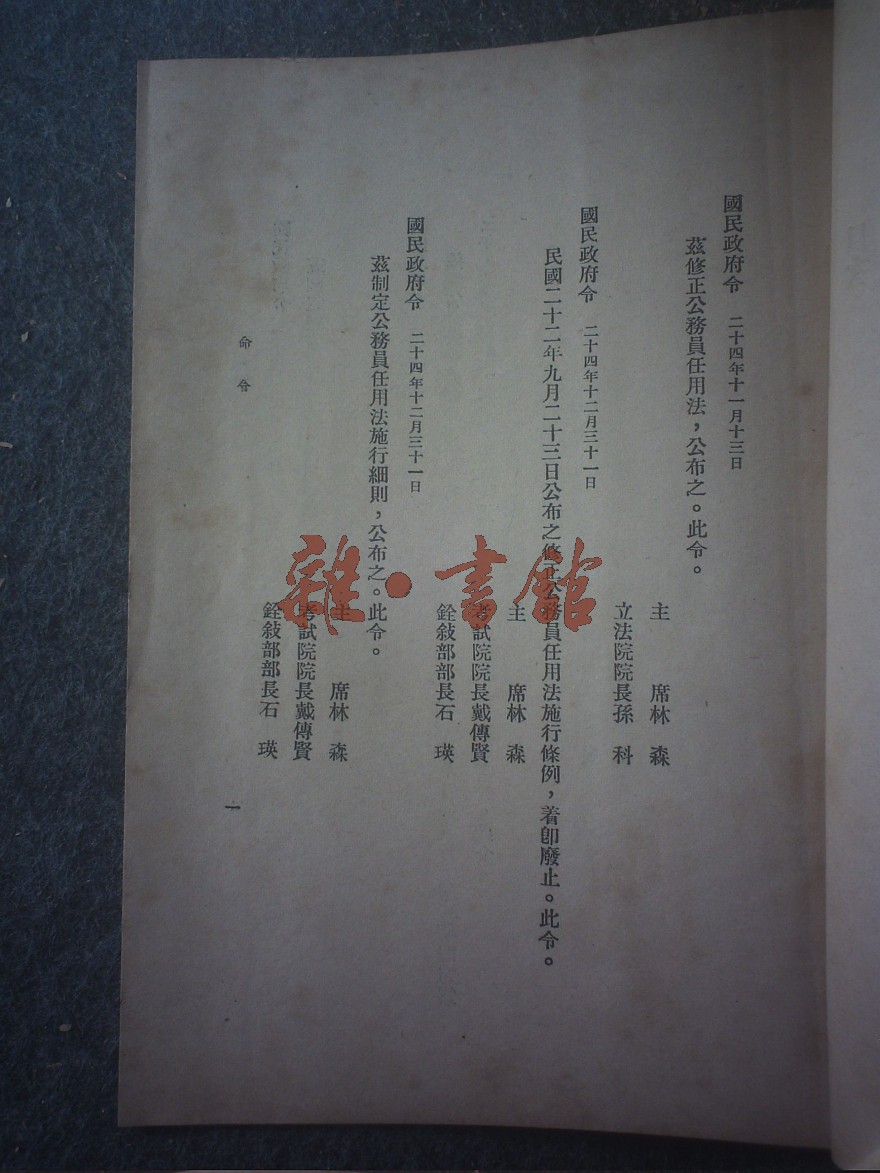 國民政府令　二十四年十一月十三日
茲修正公務員任用法，公布之。此令。
主　　席林　森
立法院院長孫　科
國民政府令　二十四年十二月三十一日
民國二十二年九月二十三日公布之修正公務員任用法施行條例，着卽廢止。此令。
主　　席林　森
考試院院長戴傳賢
銓敍部部長石　瑛
國民政府令　二十四年十二月三十一日
茲制定公務員任用法施行細則，公布之。此令。
主　　席林　森
考試院院長戴傳賢
銓敍部部長石　瑛
命　令
一
雜·書館